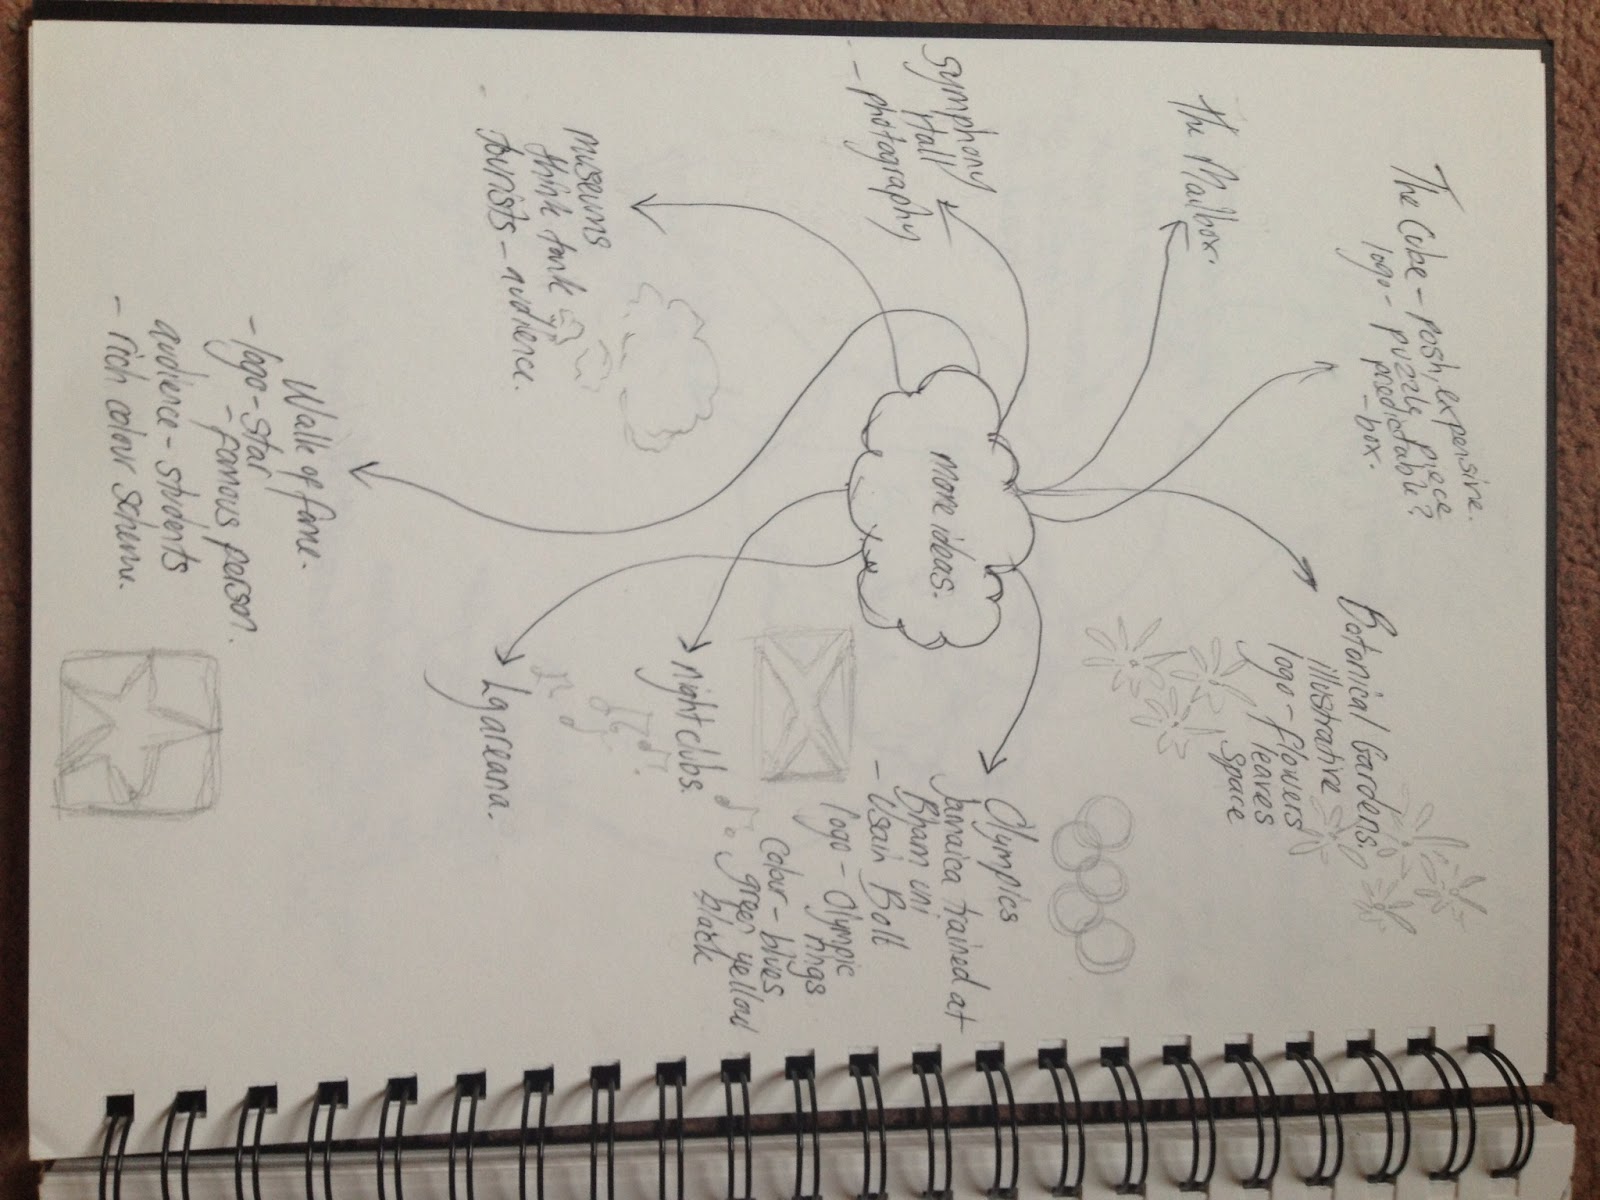 more ideas.
The Cube - posh, expensive.
logo - puzzle piece
predictable?
- box.
Botanical Gardens.
illustrative
logo - flowers
leaves
space
The Mailbox.
Symphony
Hall
- photography
Olympics
Jamaica trained at
Bham uni
- Usain Bolt
logo - Olympic
rings
colour - blues
green yellow
black
museums
think tank
tourists - audience.
nightclubs.
Lgareana.
Walk of fame.
- logo - star
- famous person.
audience - students
- rich colour scheme.